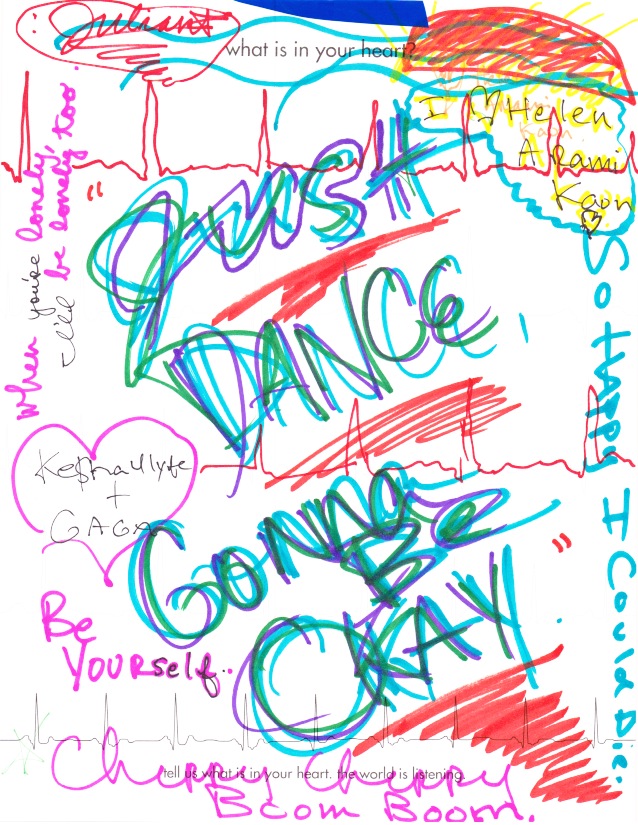 Juliant
what is in your heart?
I ♡ Helen
Arami
Kaon
When you're lonely,
I'll be lonely too.
"JUST
DANCE,
GONNA
BE
OKAY."
So HAPPY I Could Die.
+
GAGA
Be
Yourself..
tell us what is in your heart. the world is listening.
Cherry Cherry
Boom Boom.